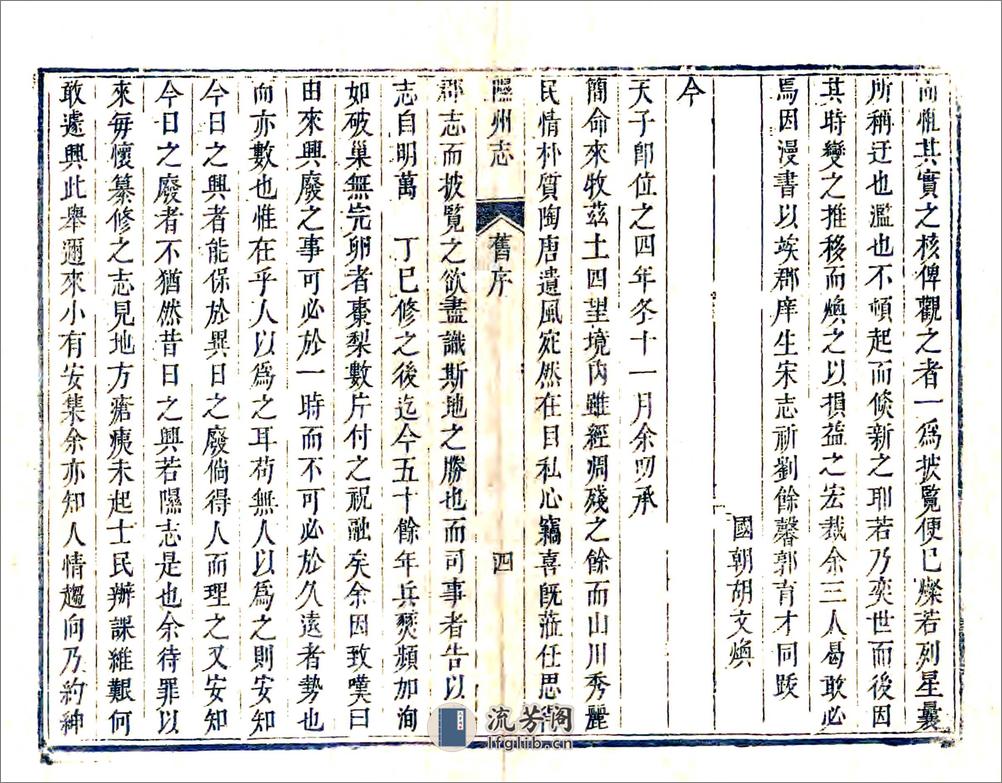 而惟其實之核俾觀之者一爲披覽便已燦若列星曩
所稱迂也濫也不頓起而倐新之耶若乃奕世而後因
其時變之推移而煥之以損益之宏裁余三人曷敢必
焉因漫書以俟郡庠生宋志新劉餘馨郭育才同跋
國朝胡文煥
今
天子卽位之四年冬十一月余叨承
簡命來牧茲土四望境內雖經凋殘之餘而山川秀麗
民情朴質陶唐遺風宛然在目私心竊喜旣蒞任思
郡志而披覽之欲盡識斯地之勝也而司事者告以
志自明萬 丁巳修之後迄今五十餘年兵燹頻加洵
如破巢無完卵者棗梨數片付之祝融矣余因致嘆曰
由來興廢之事可必於一時而不可必於久遠者勢也
而亦數也惟在乎人以爲之耳苟無人以爲之則安知
今日之興者能保於異日之廢倘得人而理之又安知
今日之廢者不猶然昔日之興若隰志是也余待罪以
來每懷纂修之志見地方瘡痍未起士民辦課維艱何
敢遽興此舉邇來小有安集余亦知人情趨向乃約紳
隰州志
舊序
四
流芳閣
lfglib.cn